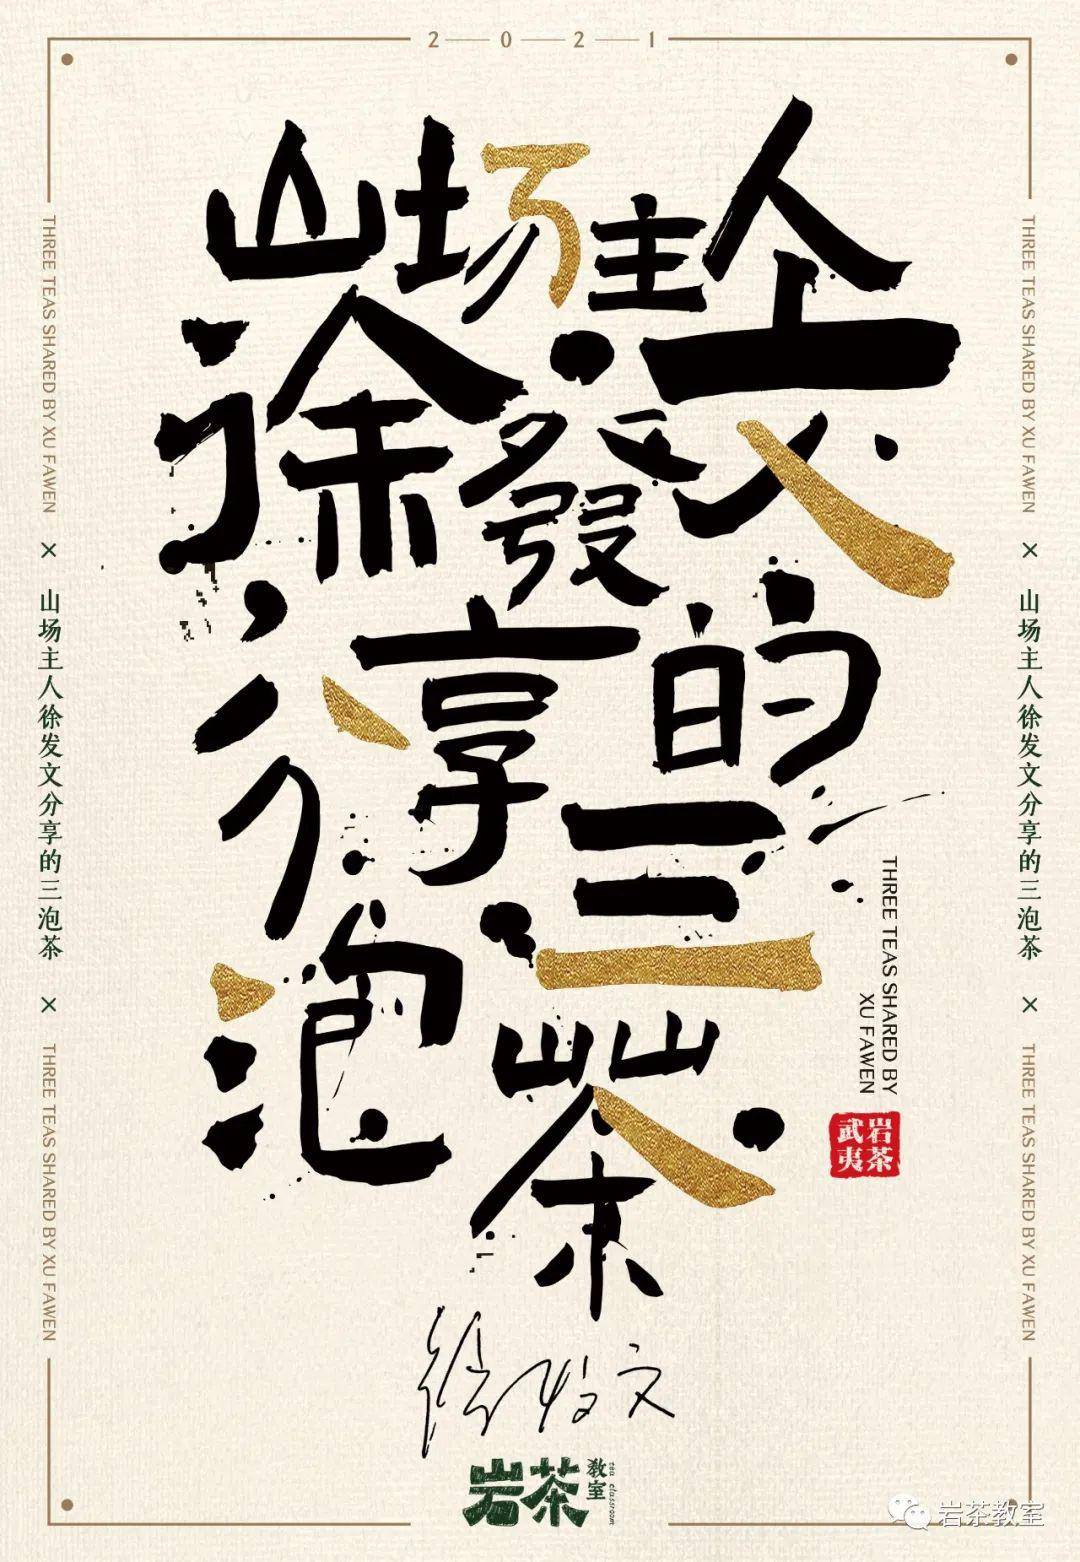 2021
山场主人
徐發文
分享的
三泡茶
THREE TEAS SHARED BY XU FAWEN × 山场主人徐发文分享的三泡茶 × THREE TEAS SHARED BY XU FAWEN
THREE TEAS SHARED BY XU FAWEN × 山场主人徐发文分享的三泡茶 × THREE TEAS SHARED BY XU FAWEN
THREE TEAS SHARED BY
XU FAWEN
岩茶
武夷
徐发文
岩茶
教室
tea classroom
岩茶教室